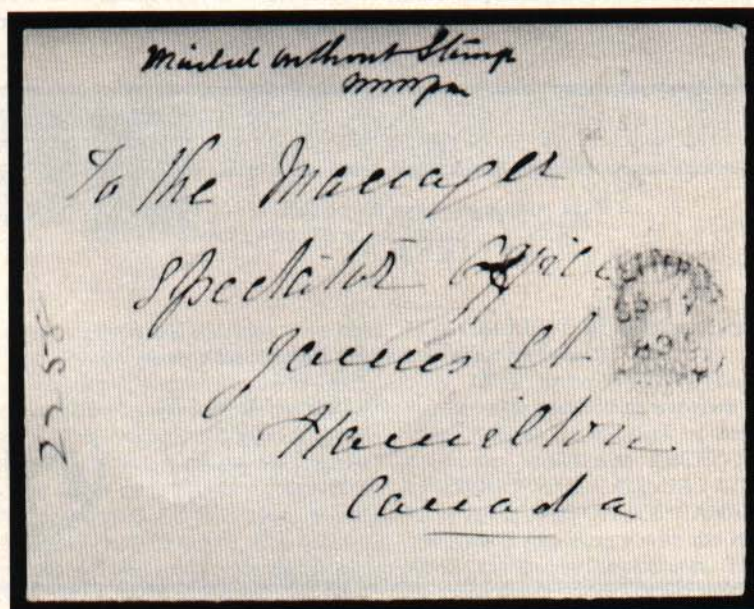 Mailed without Stamp
To the Manager
Spectator Office
James St
Hamilton
Canada
2255